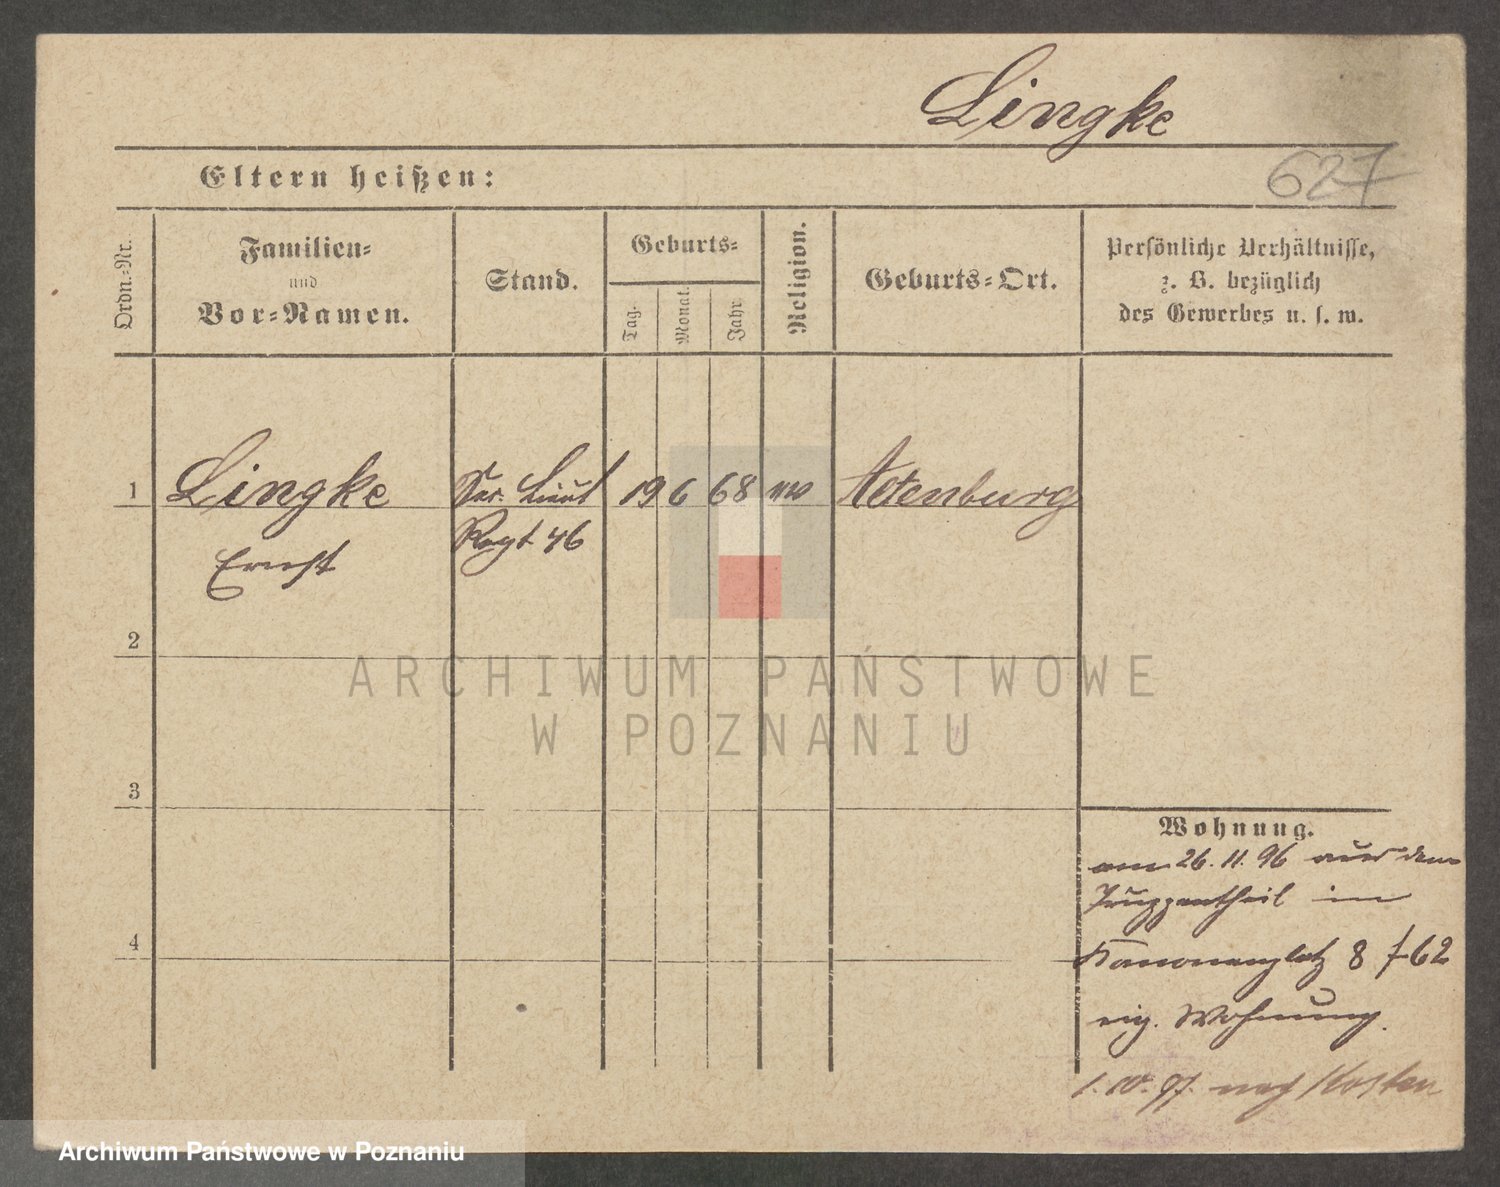 Lingke
Eltern heißen:
627
Ordn.-Nr.
Familien-
und
Vor-Namen.
Stand.
Geburts-
Tag.
Monat.
Jahr
Religion.
Geburts-Ort.
Persönliche Verhältnisse,
z. B. bezüglich
des Gewerbes u. s. w.
1
Lingke
Sec. Lieut
19
6
68
ev
Altenburg
Ernst
Regt 46
2
ARCHIWUM PAŃSTWOWE
W POZNANIU
3
Wohnung.
am 26. 11. 96 aus dem
Truppentheil in
4
Kanonenplatz 8 f 62
eig. Wohnung.
1. 10. 97. nach Kosten
Archiwum Państwowe w Poznaniu